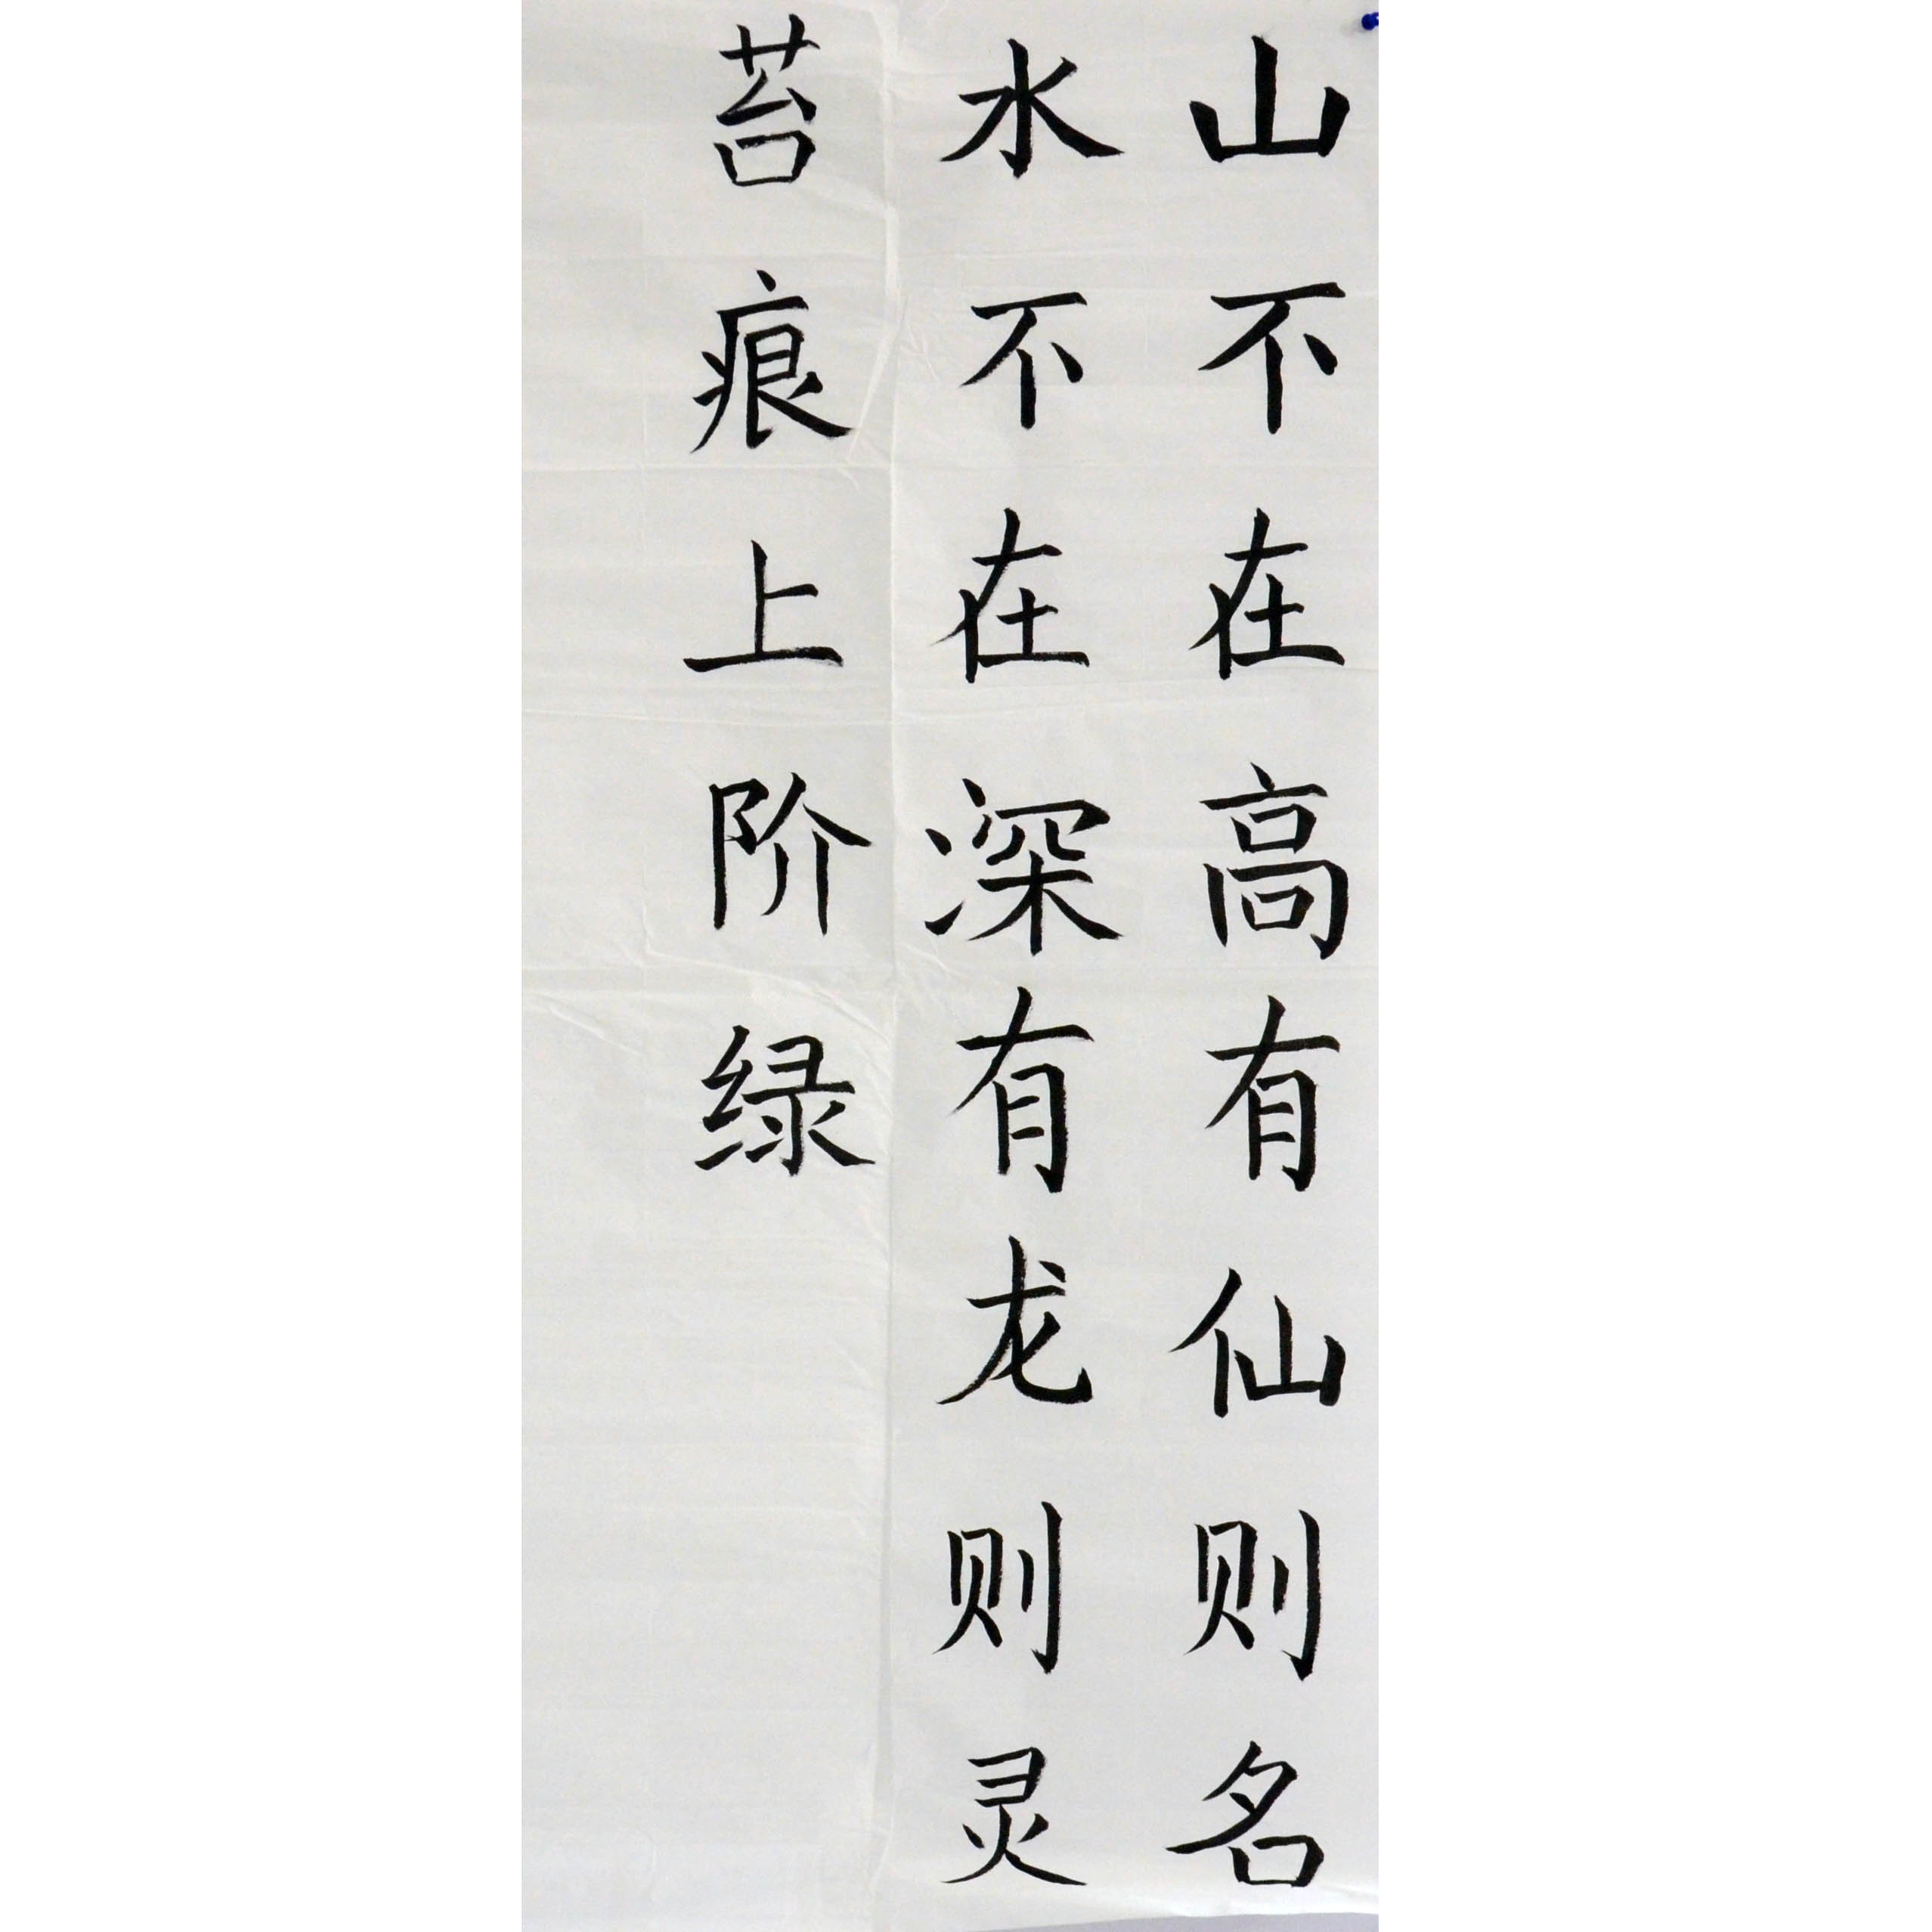 山不在高有仙则名
水不在深有龙则灵
苔痕上阶绿